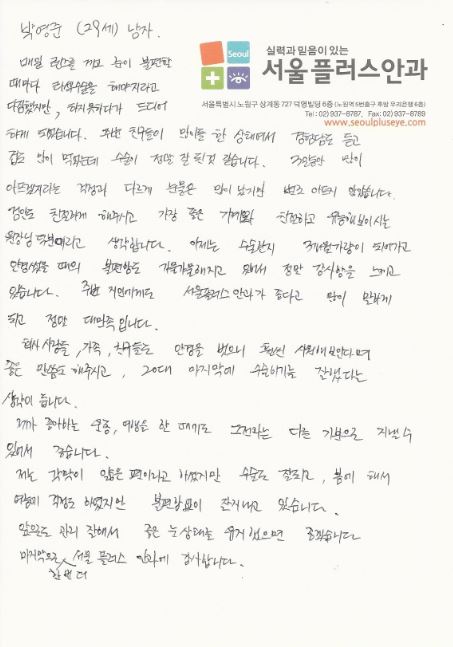 박영준 (29세) 남자.
Seoul
실력과 믿음이 있는
서울플러스안과
서울특별시 노원구 상계동 727 덕영빌딩 6층 (노원역 5번출구 후방 우리은행 6층)
Tel: 02) 937-6787, Fax: 02) 937-6789
www.seoulpluseye.com
매일 렌즈를 끼고 눈이 불편할
때마다 라섹수술을 해야지라고
다짐했지만, 하지 못하다가 드디어
하게 되었습니다. 주변 친구들이 많이들 한 상태여서 경험담도 듣고
겁도 많이 먹었는데 수술이 정말 잘 된 것 같습니다. 3일동안 많이
아프겠거라는 걱정과 다르게 눈물은 많이 났지만 별로 아프지 않았습니다.
검안도 친절하게 해주시고 가장 좋은 기계와 친절하고 유능해보이시는
원장님 덕분이라고 생각합니다. 이제는 수술한지 3개월가량이 되어가고
안경썼을 때의 불편함도 자유로워지고 해서 정말 감사함을 느끼고
있습니다. 주변 지인에게도 서울플러스 안과가 좋다고 많이 말하게
되고 정말 대만족입니다.
회사 사람들, 가족, 친구들도 안경을 벗으니 훨씬 시원해보인다며
좋은 말씀도 해주시고, 20대 마지막에 수술하기를 잘했다는
생각이 듭니다.
제가 좋아하는 운동, 여행을 할 때에도 오전과는 다른 기분으로 지낼 수
있어서 좋습니다.
저는 각막이 얇은 편이라고 하셨지만 수술도 잘되고,
걱정도 하였지만 불편함없이 잘 지내고 있습니다.
앞으로 관리 잘해서 좋은 눈 상태를 유지했으면 좋겠습니다
마지막으로 한번 더 서울 플러스 안과에 감사합니다.